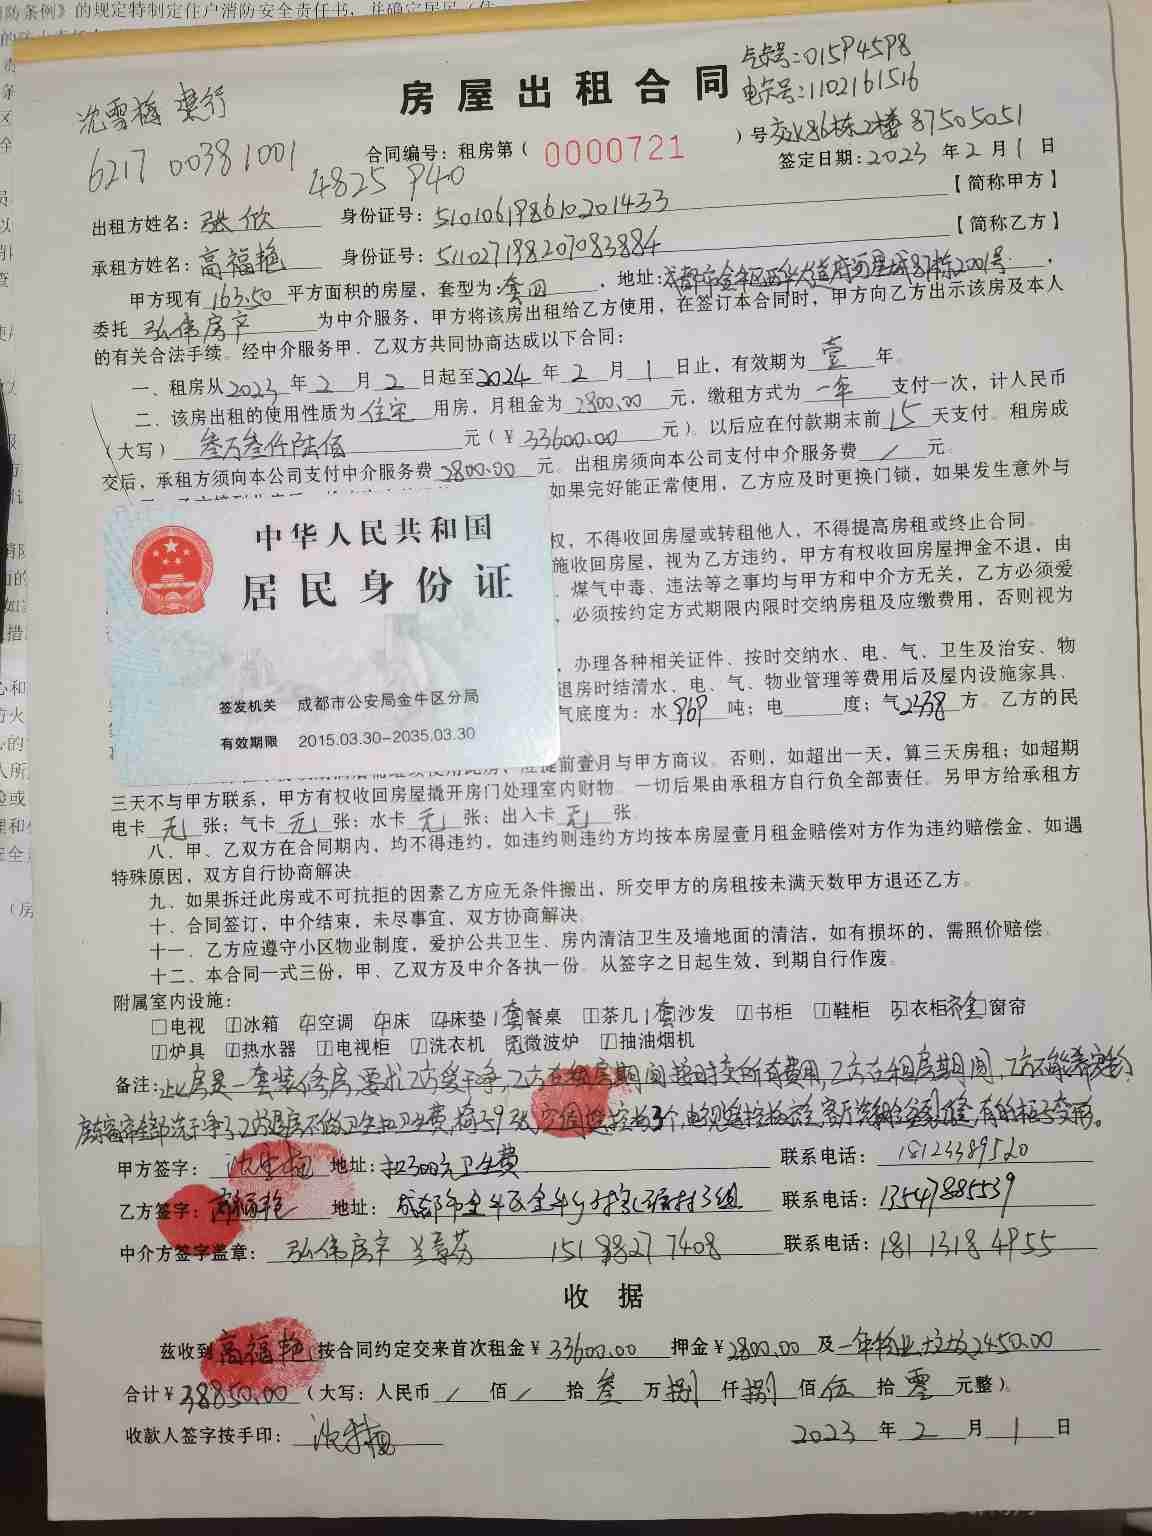 房屋出租合同
气卡号:015P45P8
电卡号:1102161516
沈雪梅 建行
6217 00381001
4825 P40
合同编号：租房第（ 0000721 ）号
交大86栋2楼 87505051
签定日期：2023 年 2 月 1 日
出租方姓名：张欣 身份证号：510106198610201433 【简称甲方】
承租方姓名：高福艳 身份证号：511027198207083884 【简称乙方】
甲方现有 163.50 平方面积的房屋，套型为：套四，地址：成都市金牛区西华大道 87栋2001号，
委托 弘伟房产 为中介服务，甲方将该房出租给乙方使用，在签订本合同时，甲方向乙方出示该房及本人
的有关合法手续。经中介服务甲、乙双方共同协商达成以下合同：
一、租房从 2023 年 2 月 2 日起至 2024 年 2 月 1 日止，有效期为 壹 年。
二、该房出租的使用性质为 住宅 用房，月租金为 2800.00 元，缴租方式为 一年 支付一次，计人民币
（大写） 叁万叁仟陆佰 元（￥33600.00 元）。以后应在付款期末前 15 天支付。租房成
交后，承租方须向本公司支付中介服务费 2800.00 元。出租房须向本公司支付中介服务费 / 元。
如果完好能正常使用，乙方应及时更换门锁，如果发生意外与
权，不得收回房屋或转租他人，不得提高房租或终止合同。
施收回房屋，视为乙方违约，甲方有权收回房屋押金不退，由
、煤气中毒、违法等之事均与甲方和中介方无关，乙方必须爱
，必须按约定方式期限内限时交纳房租及应缴费用，否则视为
，办理各种相关证件、按时交纳水、电、气、卫生及治安、物
退房时结清水、电、气、物业管理等费用后及屋内设施家具、
气底度为：水 969 吨；电 度；气 2338 方。乙方的民
中华人民共和国
居民身份证
签发机关 成都市公安局金牛区分局
有效期限 2015.03.30-2035.03.30
提前壹月与甲方商议。否则，如超出一天，算三天房租；如超期
三天不与甲方联系，甲方有权收回房屋撬开房门处理室内财物。一切后果由承租方自行负全部责任。另甲方给承租方
电卡 无 张；气卡 无 张；水卡 无 张；出入卡 无 张。
八、甲、乙双方在合同期内，均不得违约，如违约则违约方均按本房屋壹月租金赔偿对方作为违约赔偿金、如遇
特殊原因，双方自行协商解决。
九、如果拆迁此房或不可抗拒的因素乙方应无条件搬出，所交甲方的房租按未满天数甲方退还乙方。
十、合同签订，中介结束，未尽事宜，双方协商解决。
十一、乙方应遵守小区物业制度，爱护公共卫生、房内清洁卫生及墙地面的清洁，如有损坏的，需照价赔偿。
十二、本合同一式三份，甲、乙双方及中介各执一份。从签字之日起生效，到期自行作废。
附属室内设施：
□电视 1冰箱 4空调 4床 4床垫 1套餐桌 1茶几 1套沙发 1书柜 1鞋柜 5衣柜 齐全窗帘
1炉具 1热水器 1电视柜 1洗衣机 无微波炉 1抽油烟机
备注：此房是一套装修房，要求乙方爱干净，乙方在租房期间按时交所有费用，乙方在租房期间，乙方不能养宠物，
甲方签字： 地址：扣300元卫生费 联系电话：18123389520
乙方签字：高福艳 地址：成都市金牛区金牛乡 村3组 联系电话：13547885539
中介方签字盖章：弘伟房产 兰高芬 15198277408 联系电话：18113184955
收 据
兹收到 高福艳 按合同约定交来首次租金￥33600.00 押金￥2800.00 及一年物业，垃圾2450.00
合计￥38850.00（大写：人民币 / 佰 / 拾 叁 万 捌 仟 捌 佰 伍 拾 零 元整）。
收款人签字按手印： 2023 年 2 月 1 日